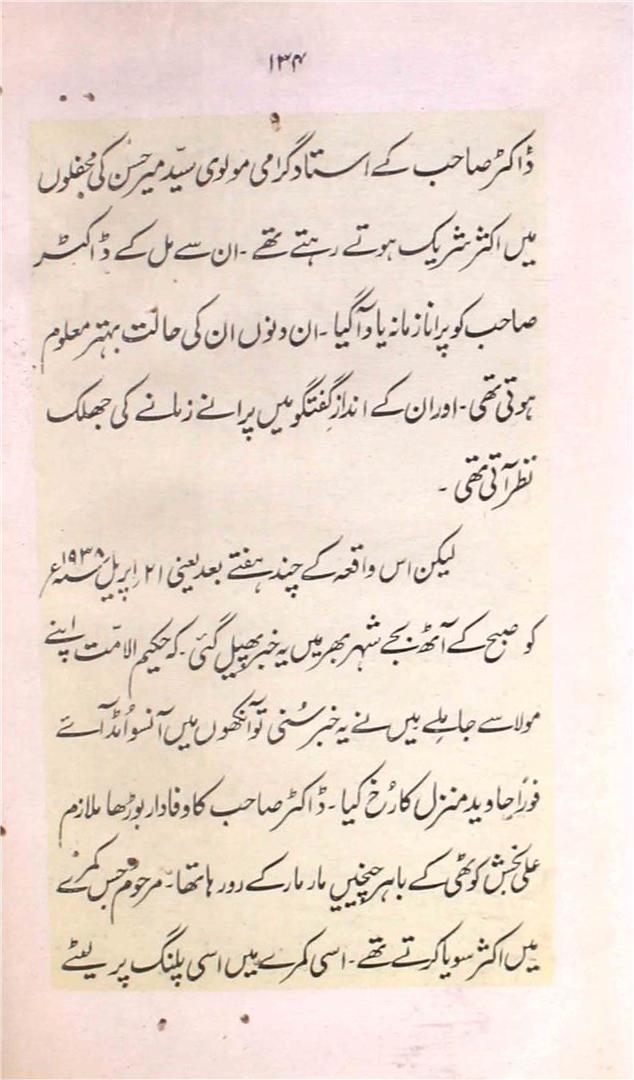 ۱۳۴
ڈاکٹر صاحب کے استاد گرامی مولوی سیّد میر حسن کی محفلوں
میں اکثر شریک ہوتے رہتے تھے ۔ ان سے مل کے ڈاکٹر
صاحب کو پرانا زمانہ یاد آ گیا ۔ ان دنوں ان کی حالت بہتر معلوم
ہوتی تھی ۔ اور ان کے اندازِ گفتگو میں پرانے زمانے کی جھلک
نظر آتی تھی ۔
لیکن اس واقعہ کے چند ہفتے بعد یعنی ۲۱ اپریل ۱۹۳۸ء
کو صبح کے آٹھ بجے شہر بھر میں یہ خبر پھیل گئی ۔ کہ حکیم الامّت اپنے
مولا سے جا ملے میں نے یہ خبر سُنی تو آنکھوں میں آنسو اُمڈ آئے
فوراً جاوید منزل کا رُخ کیا ۔ ڈاکٹر صاحب کا وفادار بوڑھا ملازم
علی بخش کوٹھی کے باہر چیخیں مار مار کے رو رہا تھا ۔ مرحوم جس کمرے
میں اکثر سویا کرتے تھے ۔ اسی کمرے میں اسی پلنگ پر لیٹے